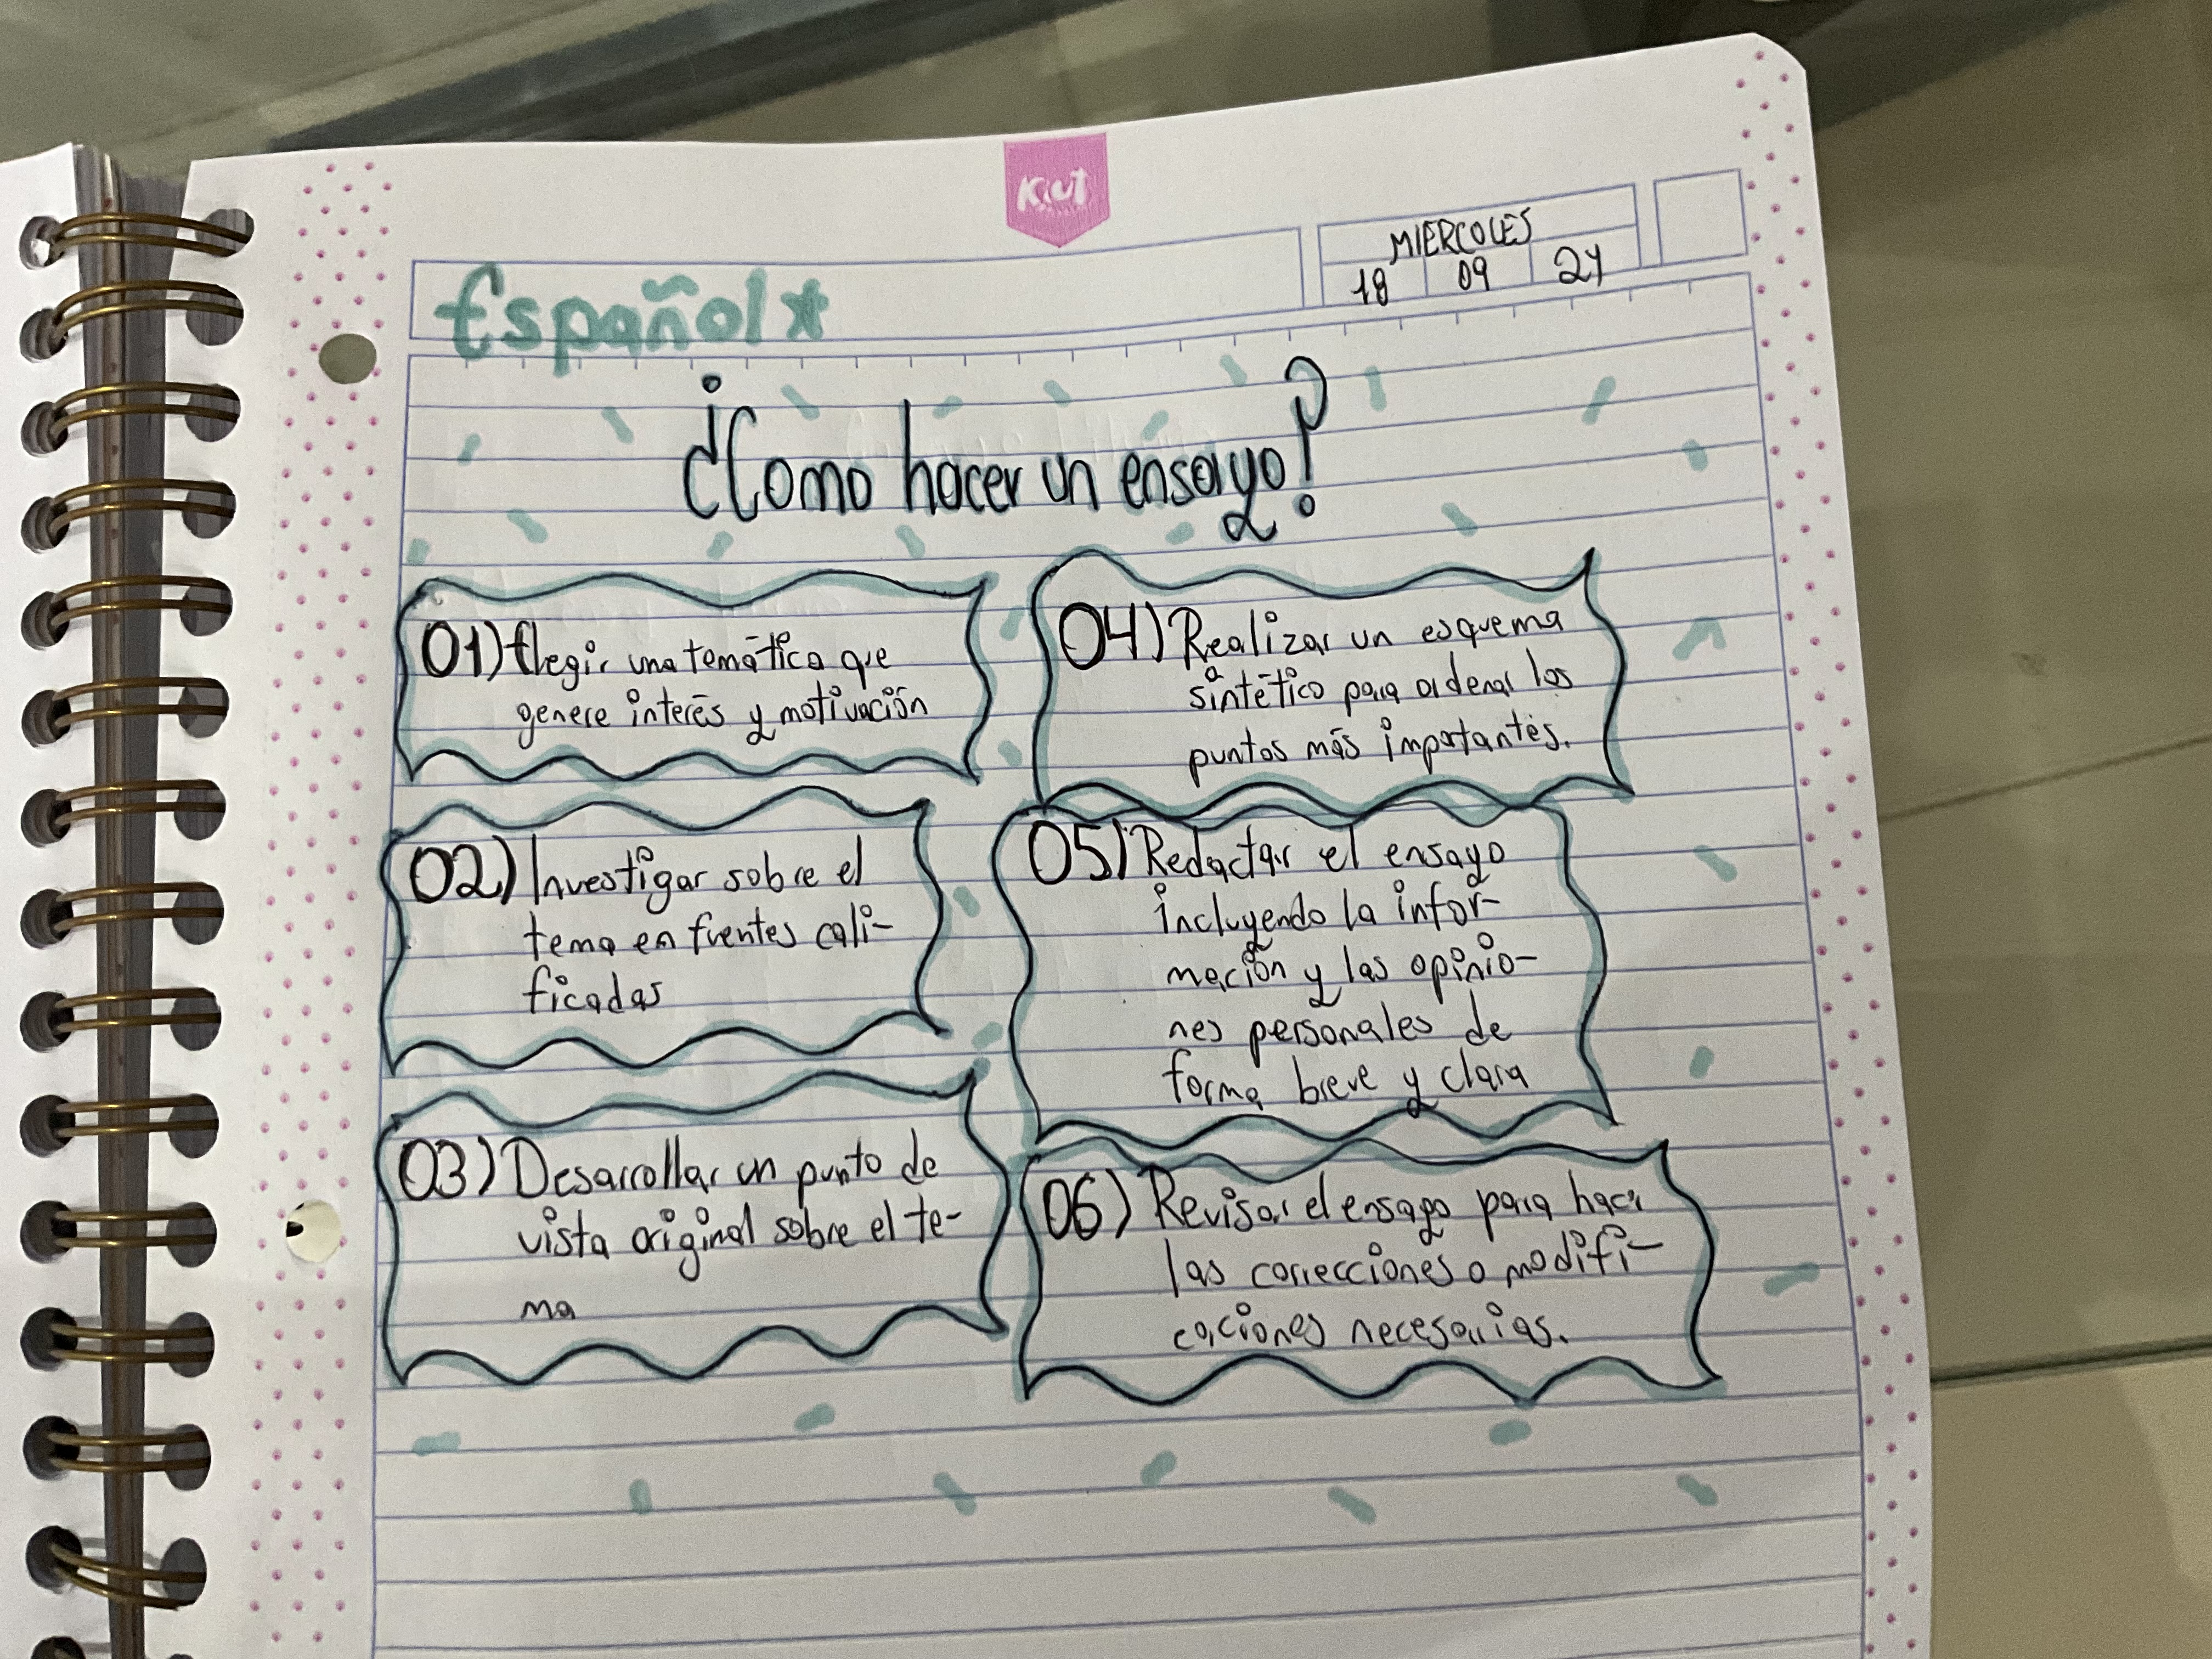 Kiut
MIERCOLES
18 09 24
Español
¿Como hacer un ensayo?
01) Elegir una temática que
genere interés y motivación
02) Investigar sobre el
tema en fuentes cali-
ficadas
03) Desarrollar un punto de
vista original sobre el te-
ma
04) Realizar un esquema
sintético para ordenar los
puntos más importantes.
05) Redactar el ensayo
incluyendo la infor-
mación y las opinio-
nes personales de
forma breve y clara
06) Revisar el ensayo para hacer
las correcciones o modifi-
caciones necesarias.